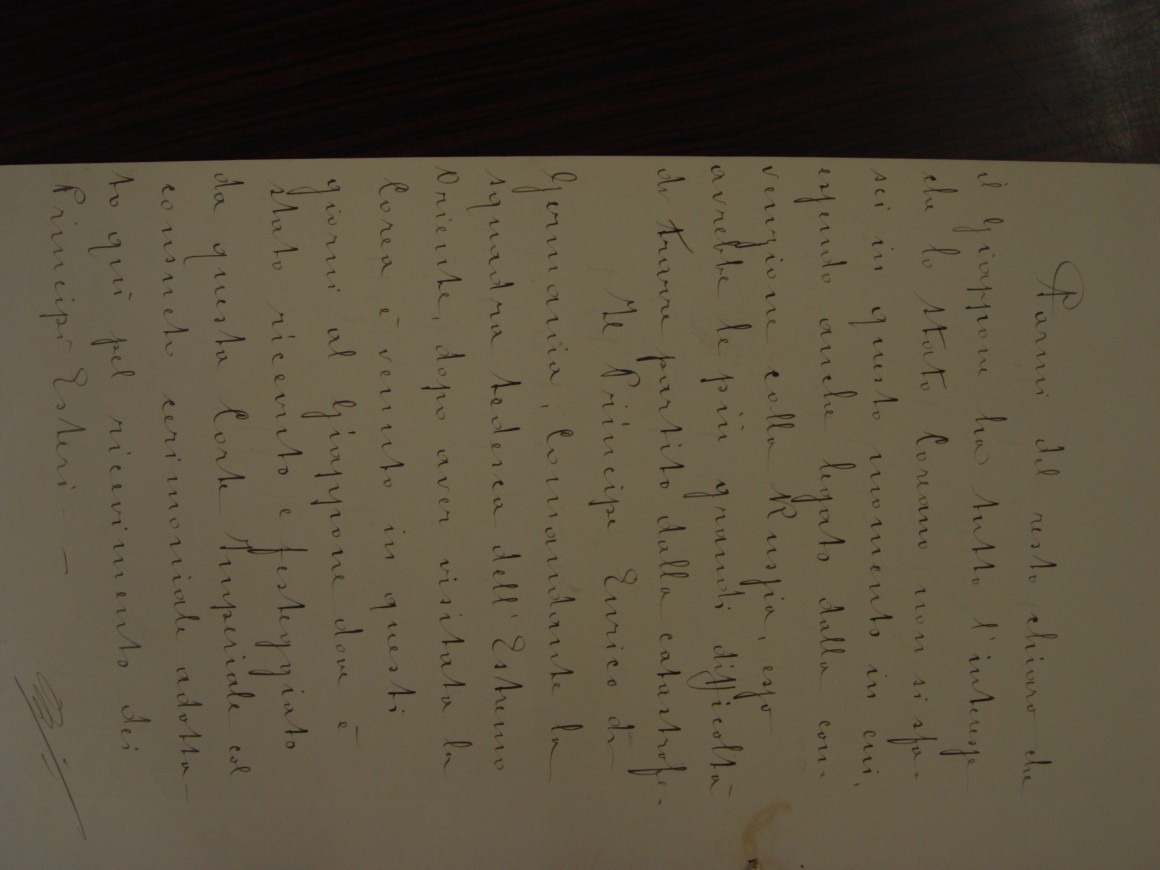 Parmi del resto chiaro che
il Giappone ha tutto l'interesse
che lo stato Coreano non si sfa-
sci in questo momento in cui,
essendo anche legato dalla con-
venzione colla Russia, esso
avrebbe le più grandi difficoltà
di trarre partito dalla catastrofe.
Il Principe Enrico di
Germania, Comandante la
squadra tedesca dell'Estremo
Oriente, dopo aver visitata la
Corea è venuto in questi
giorni al Giappone dove è
stato ricevuto e festeggiato
da questa Corte Imperiale col
consueto cerimoniale adotta-
to qui pel ricevimento dei
Principi Esteri. —